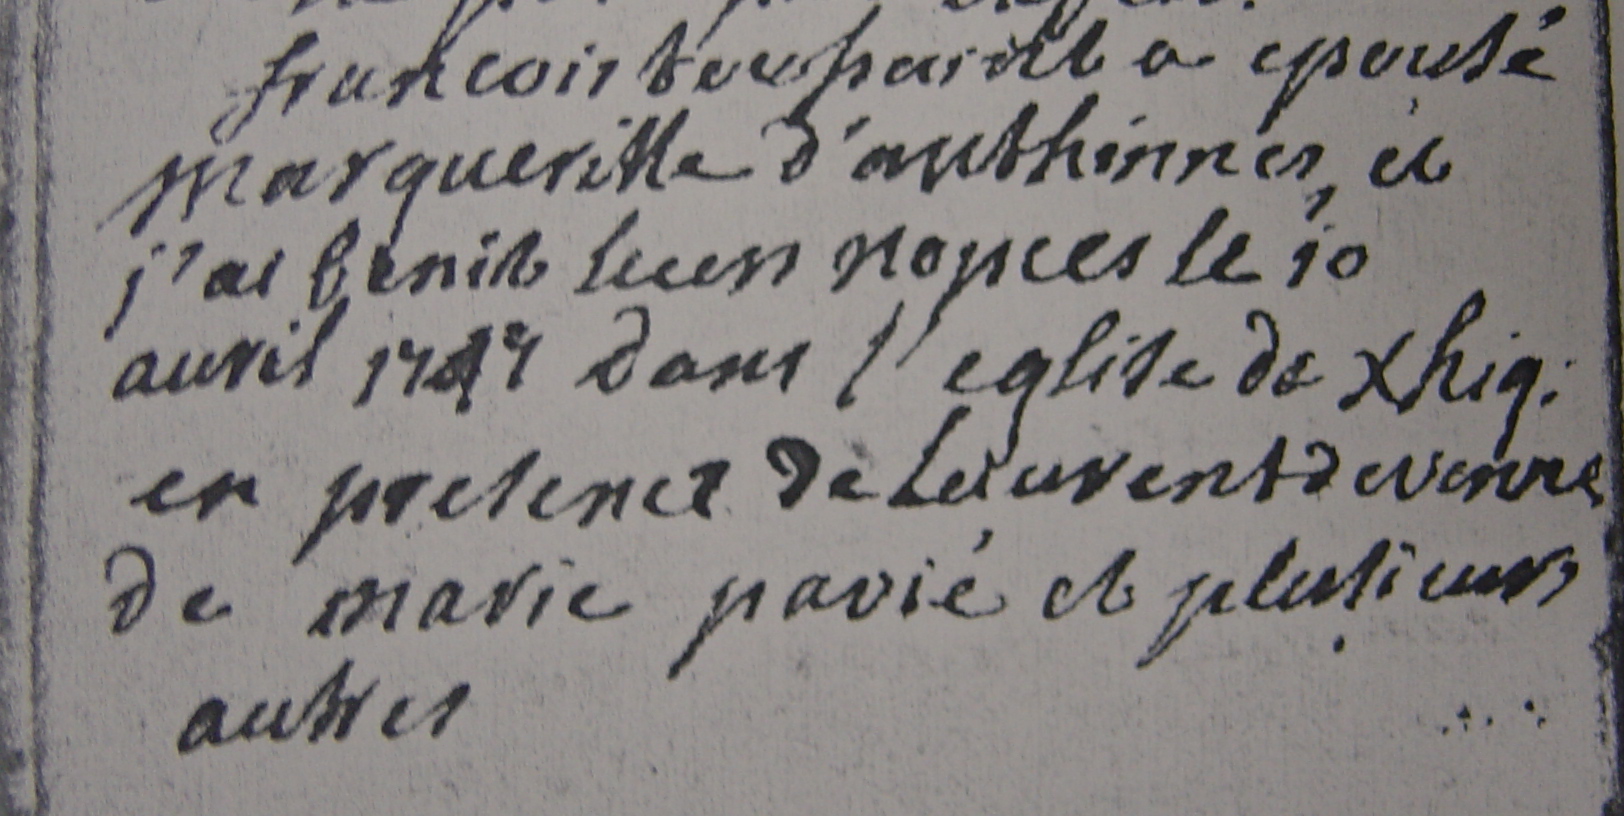 francois toussaint a epousé
margueritte d'anthinnes, et
j'ai benit leurs nopces le 10
auril 1747 dans l'eglise de xhig:
en presence de Laurent devenne
de marie pavié et plusieurs
autres